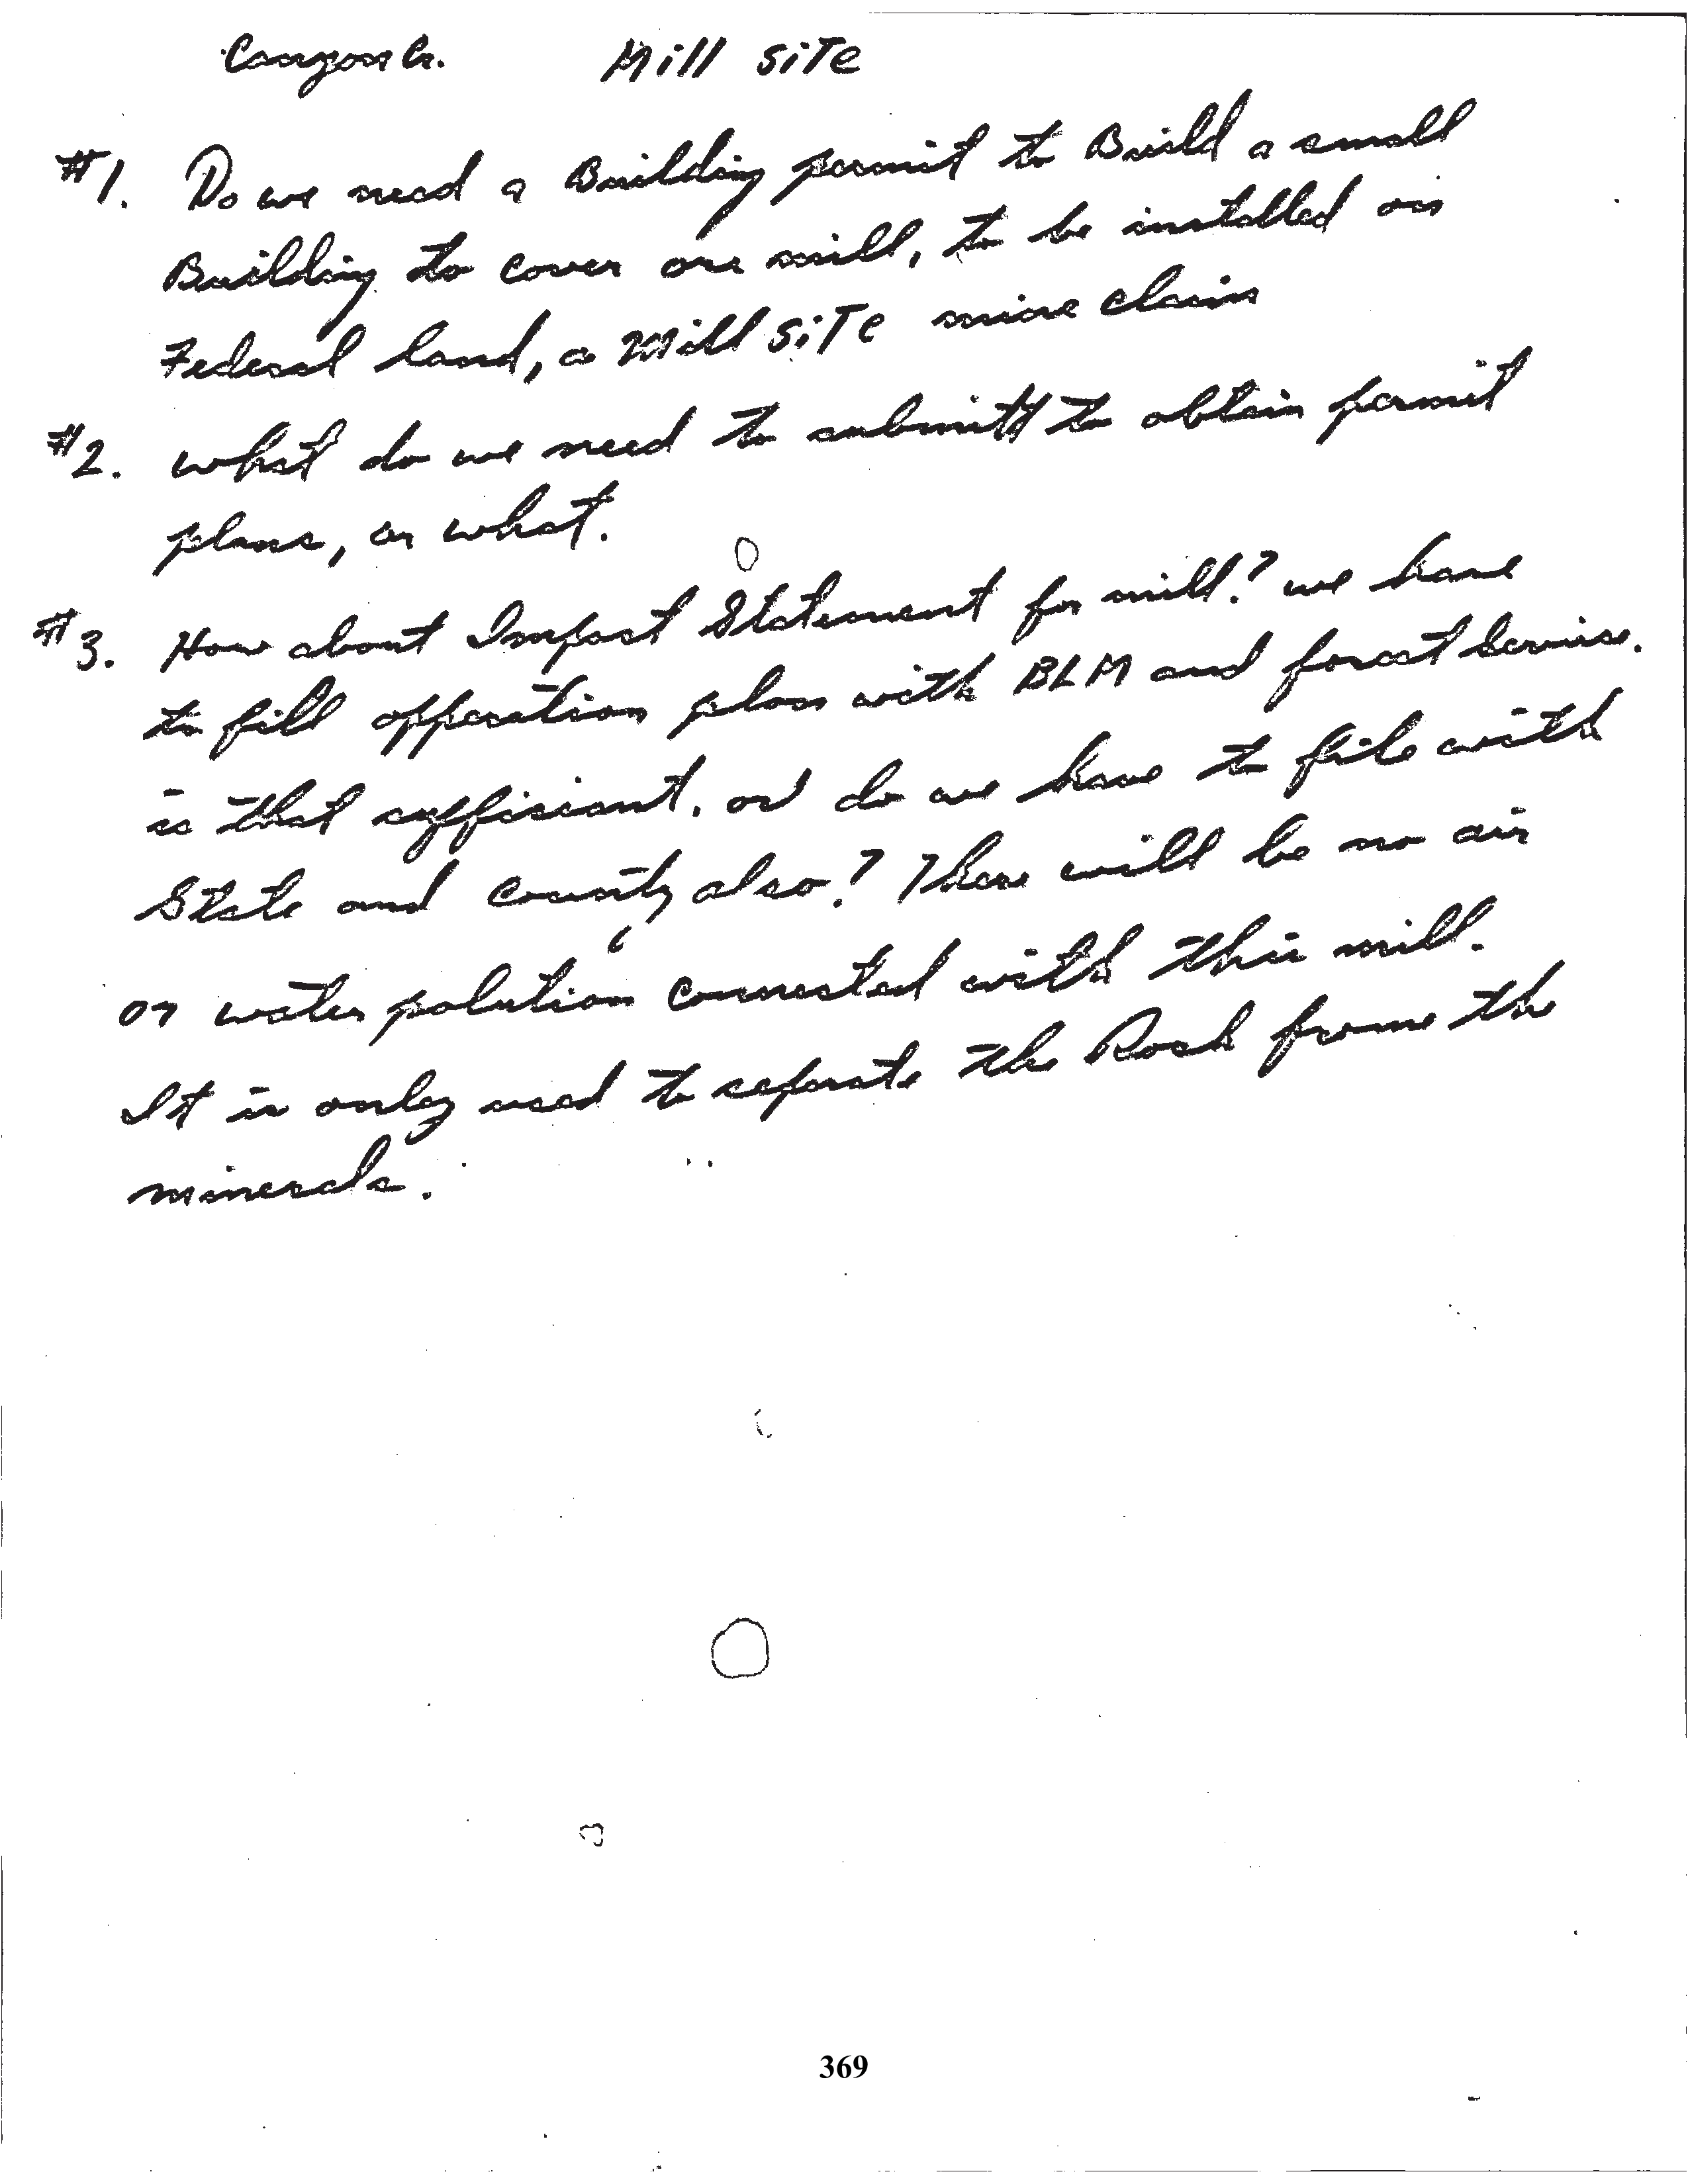 Canyon Cr. Mill SiTe
#1. Do we need a Building permit to Build a small
Building to cover ore mill, to be installed on
Federal land, a Mill SiTe mine claim
#2. what do we need to submitt to obtain permit
plans, or what.
#3. How about Impact Statement for mill? we have
to fill opperation plan with BLM and forest Service.
is that sufficiant. or do we have to file with
State and County also? There will be no air
or water polution connected with this mill.
It is only used to seperate the Rock frome the
minerals.
369